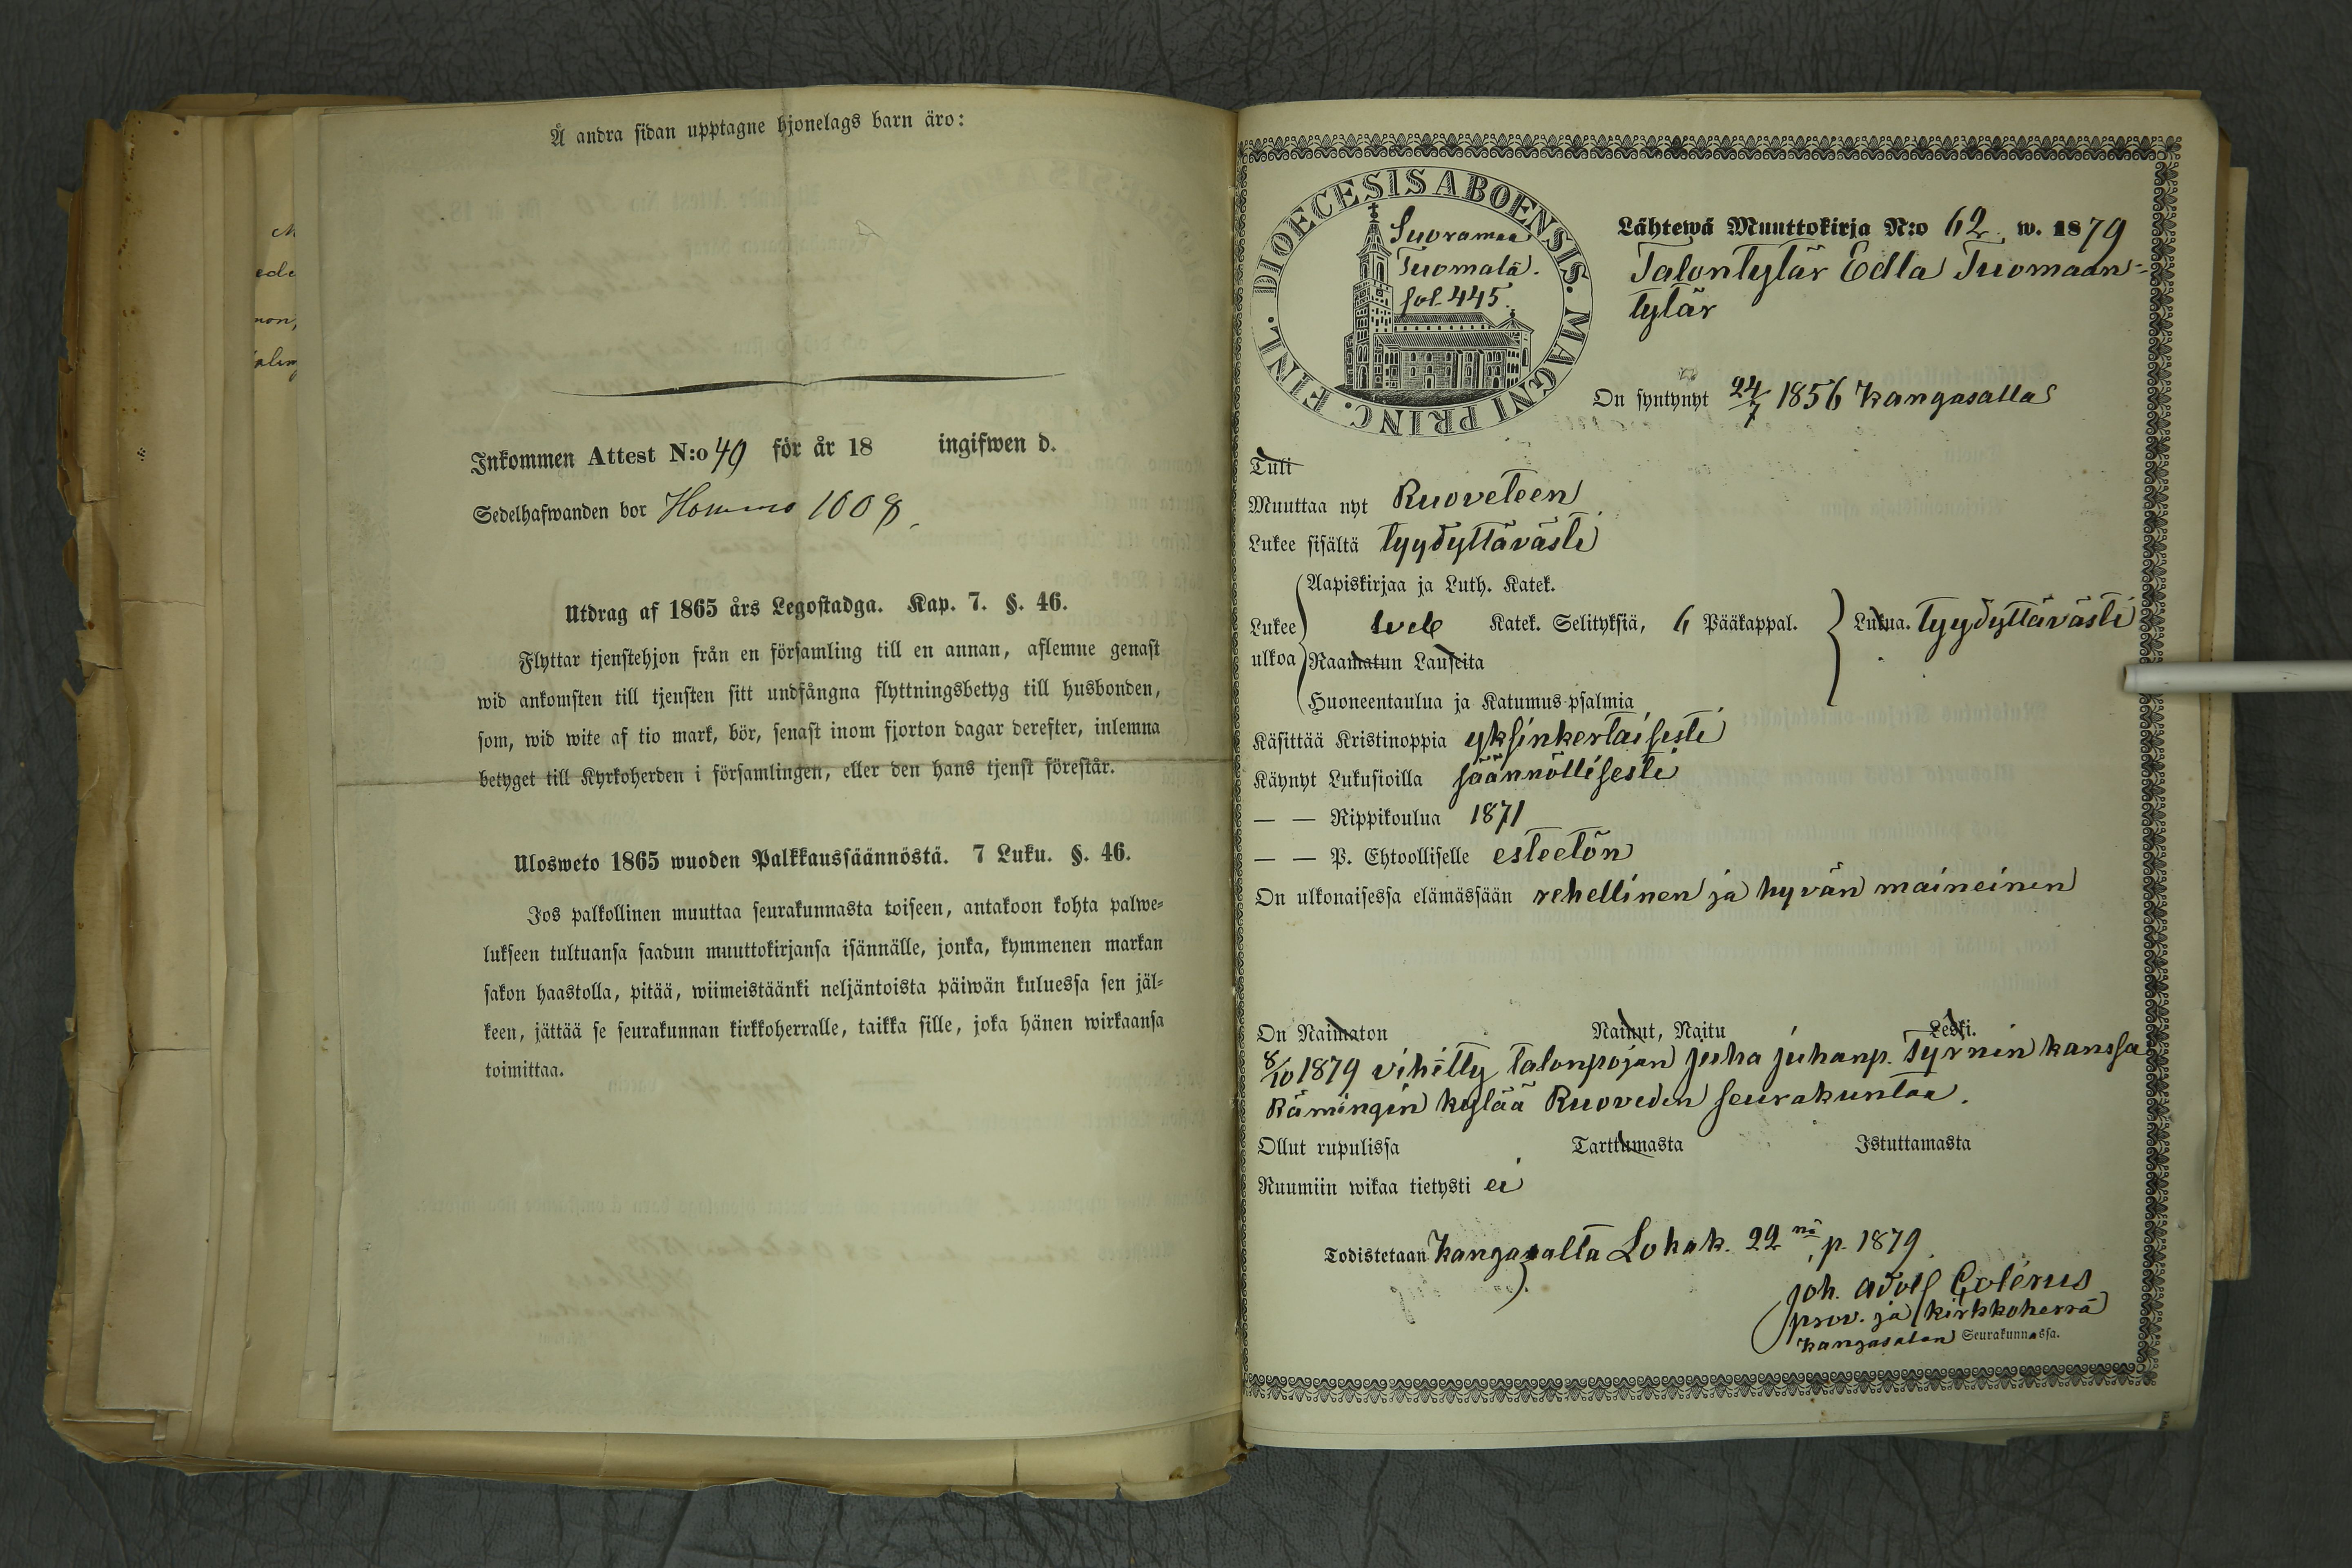 Å andra sidan upptagne hjonelags barn äro:
Inkommen Attest N:o 49 för år 18 ingifwen d.
Sedelhafwanden bor 1008.
Utdrag af 1865 års Legostadga. Kap. 7. §. 46.
Flyttar tjenstehjon från en församling till en annan, aflemne genast
wid ankomsten till tjensten sitt undfångna flyttningsbetyg till husbonden,
som, wid wite af tio mark, bör, senast inom fjorton dagar derefter, inlemna
betyget till Kyrkoherden i församlingen, eller den hans tjenst förestår.
Ulosweto 1865 wuoden Palkkaussäännöstä. 7 Luku. §. 46.
Jos palkollinen muuttaa seurakunnasta toiseen, antakoon kohta palwe-
lukseen tultuansa saadun muuttokirjansa isännälle, jonka, kymmenen markan
sakon haastolla, pitää, wiimeistäänki neljäntoista päiwän kuluessa sen jäl-
keen, jättää se seurakunnan kirkkoherralle, taikka sille, joka hänen wirkaansa
toimittaa.
DIOECESIS ABOENSIS. MAGNI PRINC. FINL.
Suoramaa
Tuomala.
fol. 445.
Lähtewä Muuttokirja N:o 62. w. 1879
Talontytär Edla Tuomaan-
tytär
On syntynyt 24/7 1856 Kangasalla
Tuli
Muuttaa nyt Ruoveteen
Lukee sisältä tyydyttävästi
Aapiskirjaa ja Luth. Katek.
Lukee ulkoa Katek. Selityksiä, 6 Pääkappal. Lukua. tyydyttävästi
Raamatun Lauseita
Huoneentaulua ja Katumus-psalmia
Käsittää Kristinoppia yksinkertaisesti
Käynyt Lukusioilla säännöllisesti
— — Rippikoulua 1871
— — P. Ehtoolliselle esteetön
On ulkonaisessa elämässään rehellinen ja hyvän maineinen
On Naimaton Nainut, Naitu Leski.
8/10 1879 vihitty talonpojan Juha Juhanp. Tyrnin kanssa
Rämingin kylää Ruoveden seurakuntaa.
Ollut rupulissa Tarttumasta Istuttamasta
Ruumiin wikaa tietysti ei
Todistetaan Kangasalta Lokak. 22 nä p. 1879.
Joh. Adolf
prov. ja kirkkoherra
Kangasalan Seurakunnassa.